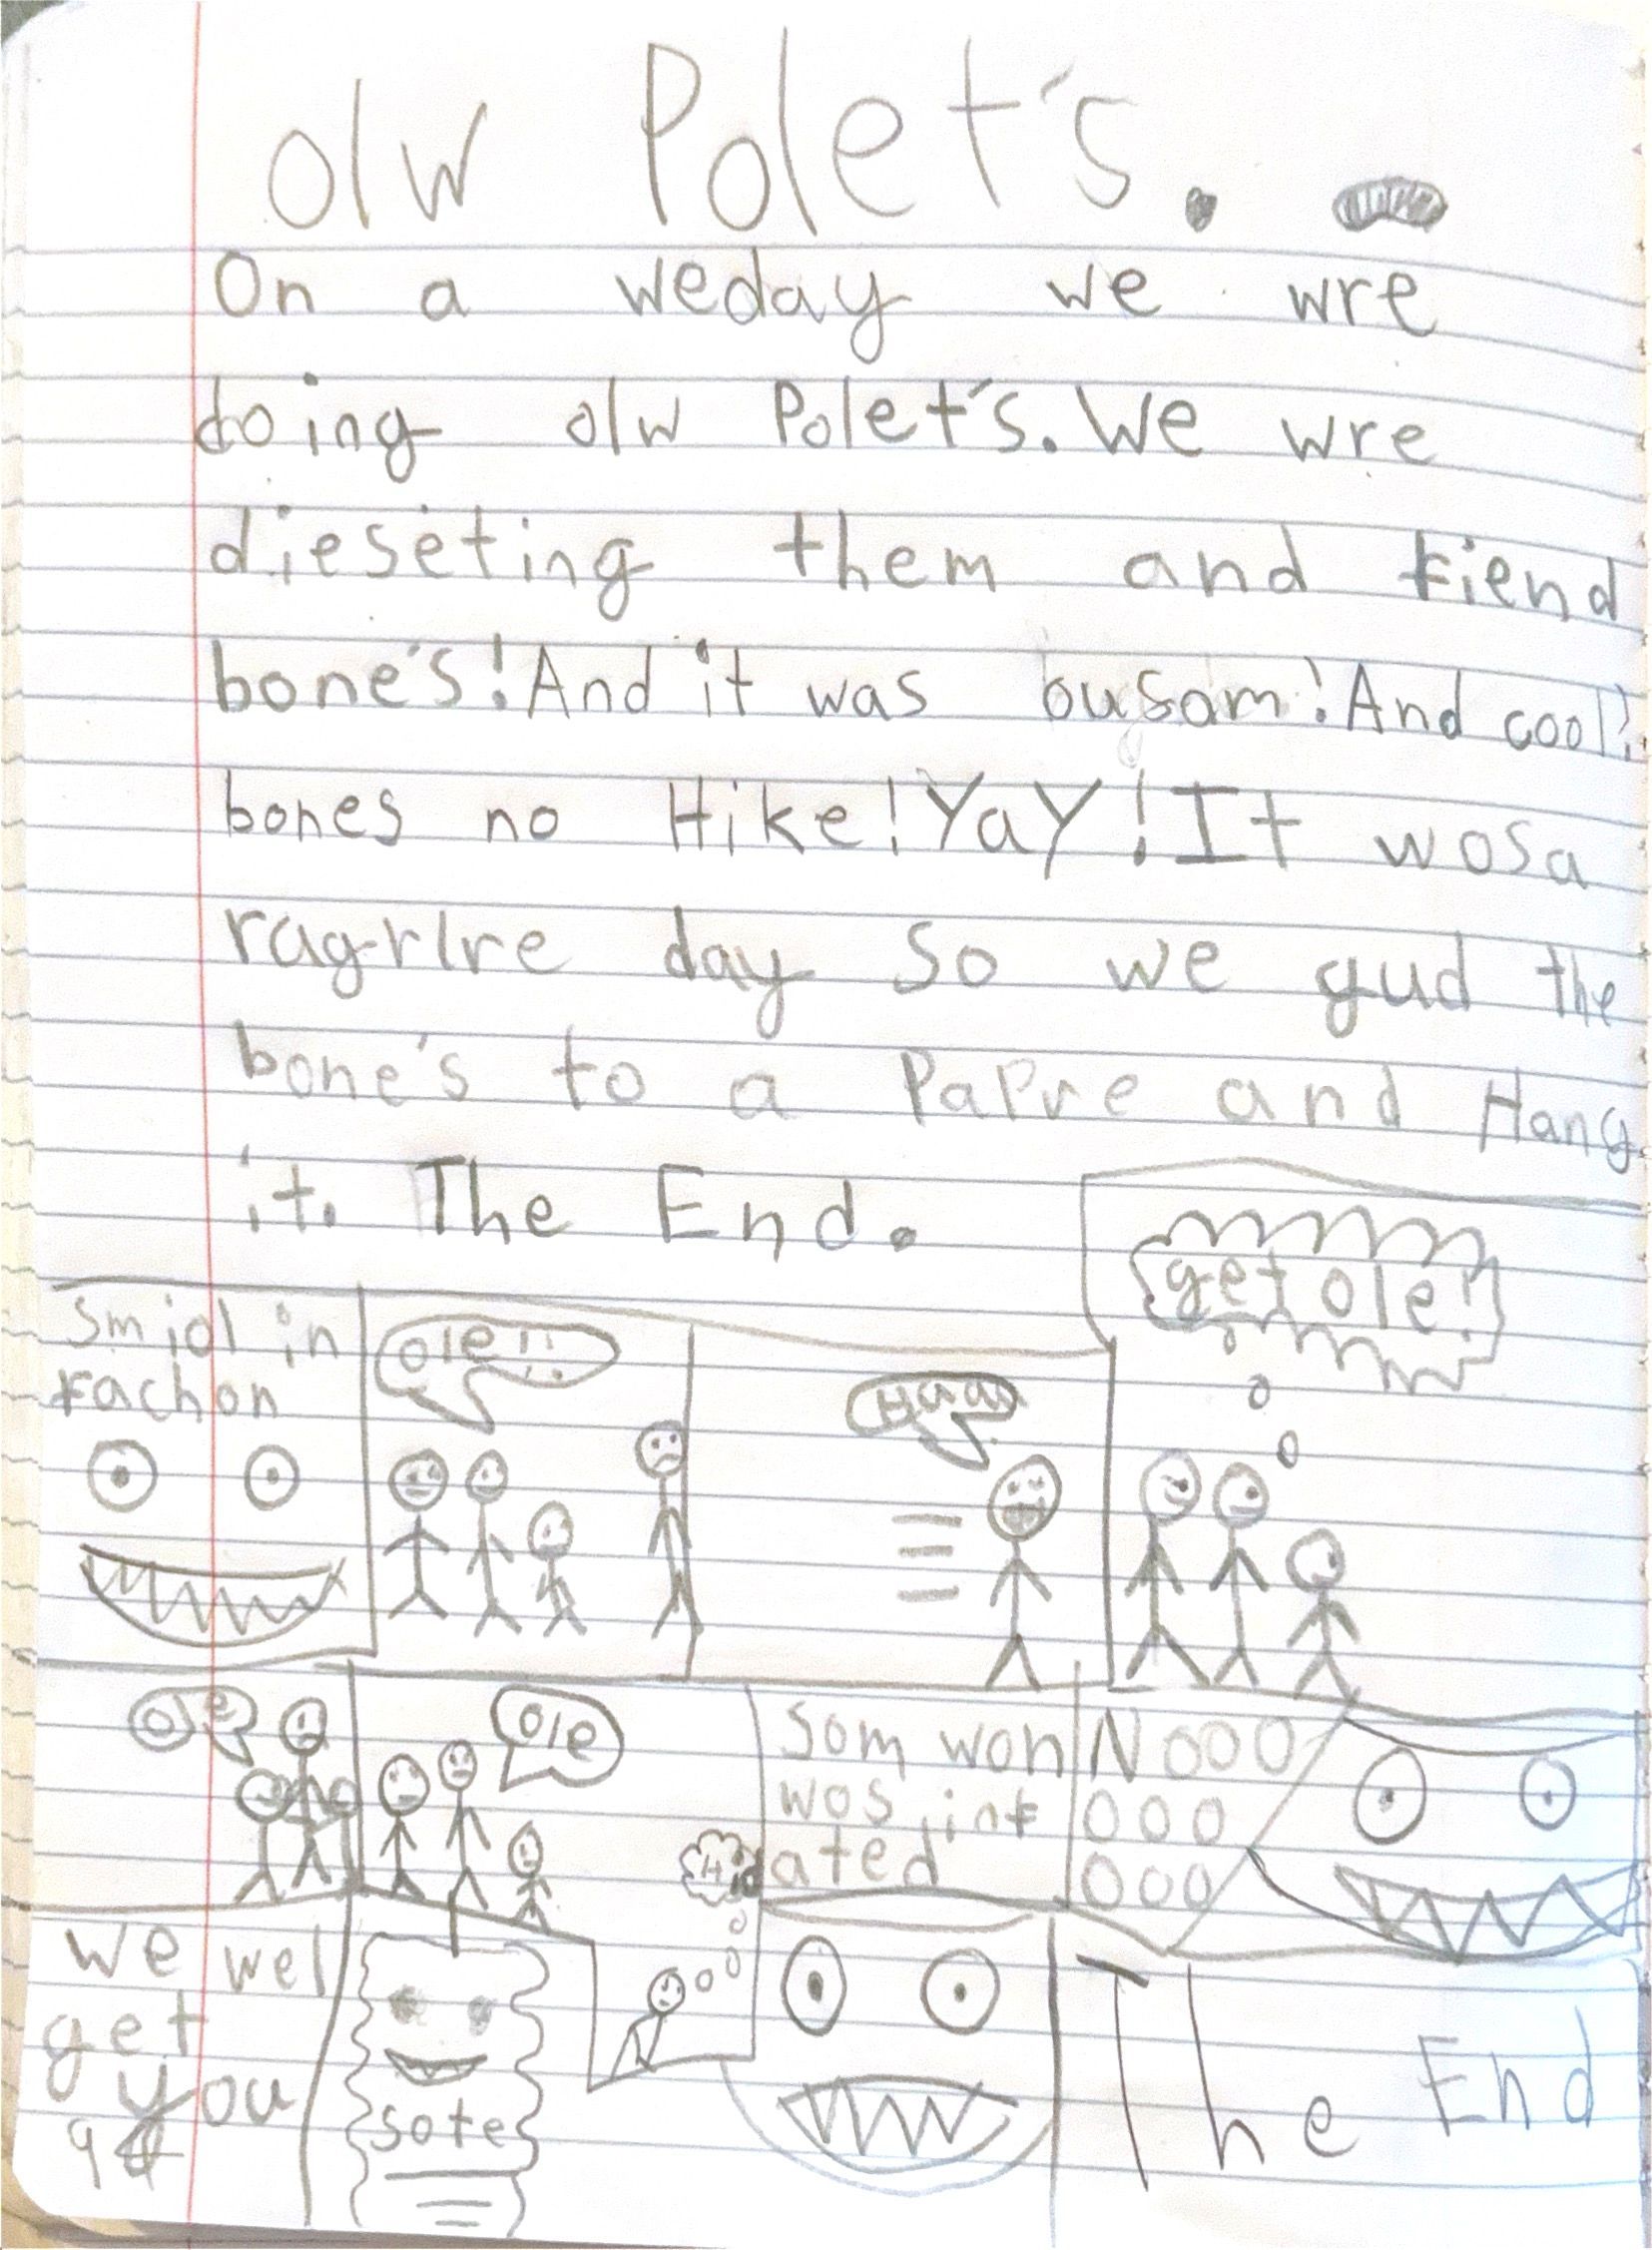 olw Polet's.
On a weday we wre
doing olw Polet's. We wre
dieseting them and fiend
bone's! And it was ousam! And cool!
bones no Hike! YaY! It wosa
ragrlre day so we gud the
bone's to a PaPre and Hang
it. The End.
get ole!
Smiol in
fachon
ole!!
Haaa
ole
ole
Hid
Som won
wos inf
ated
Nooo
ooo
ooo
we wel
get
you
sote
The End